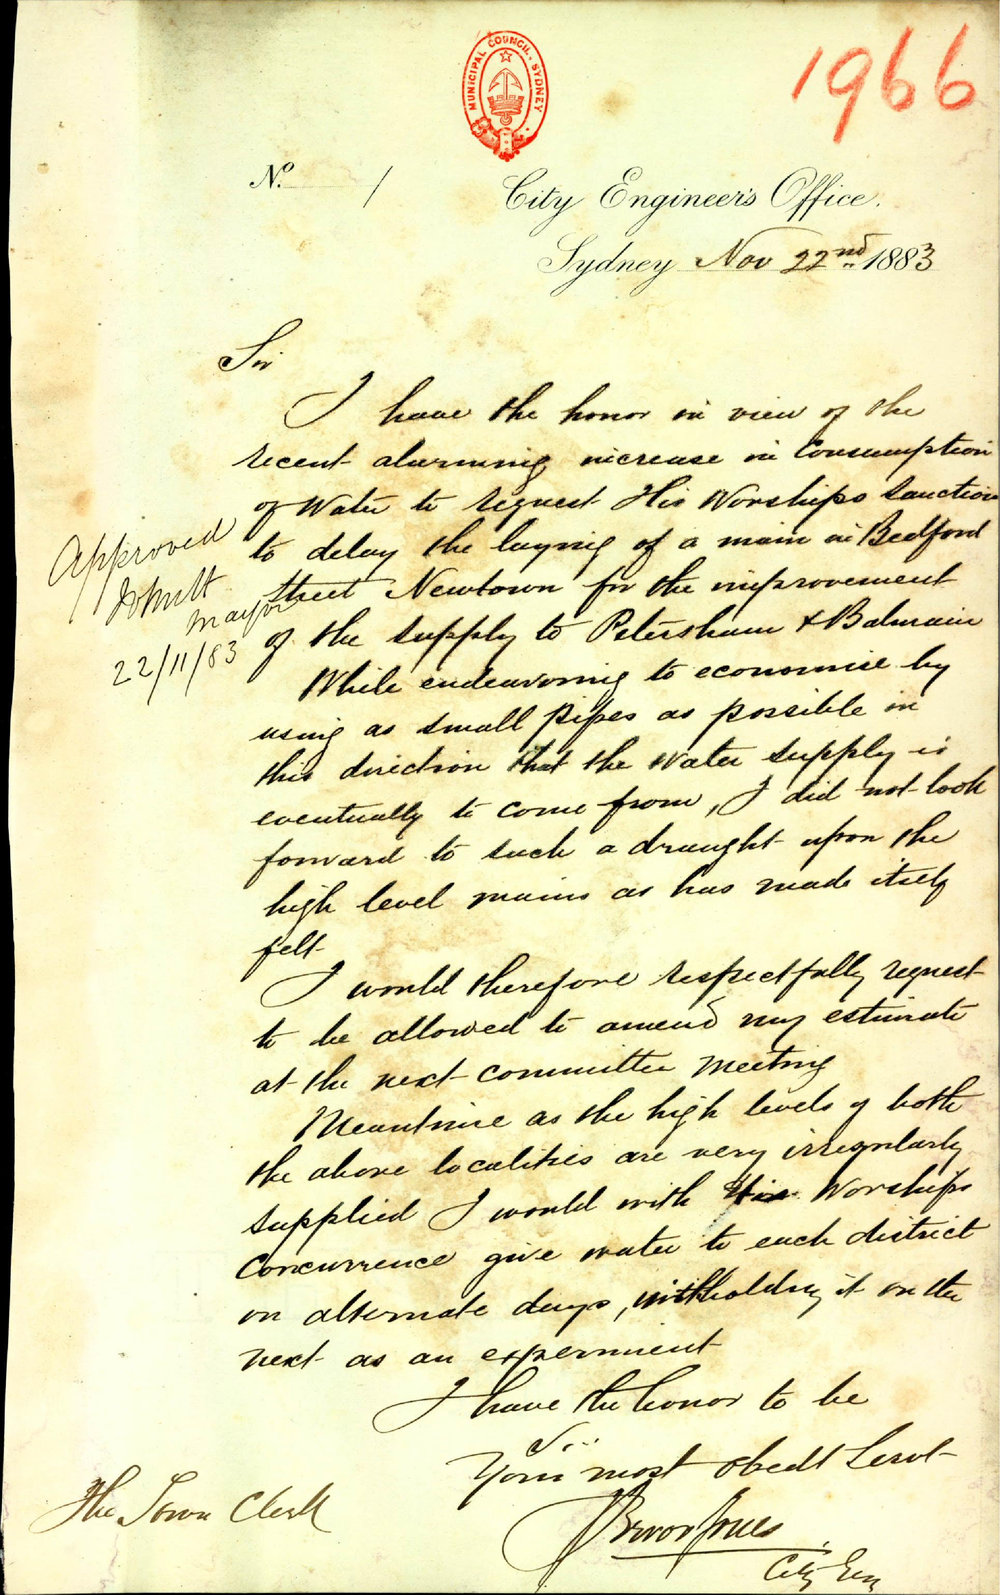 MUNICIPAL COUNCIL, SYDNEY
1966
No. 1
City Engineer's Office.
Sydney Nov 22nd 1883
Sir
I have the honor in view of the
recent alarming increase in Consumption
of Water to request His Worships Sanction
to delay the laying of a main in Bedford
street Newtown for the improvement
of the supply to Petersham & Balmain
While endeavoring to economise by
using as small pipes as possible in
this direction that the Water supply is
eventually to come from, I did not look
forward to such a draught upon the
high level mains as has made itself
felt
I would therefore respectfully request
to be allowed to amend my estimate
at the next committee meeting
Meantime as the high levels of both
the above localities are very irregularly
supplied I would with His Worships
Concurrence give water to each district
on alternate days, withholding it on the
next as an experiment
I have the honor to be
Sir
Your most obedt Servt
City Eng
The Town Clerk
Approved
Mayor
22/11/83